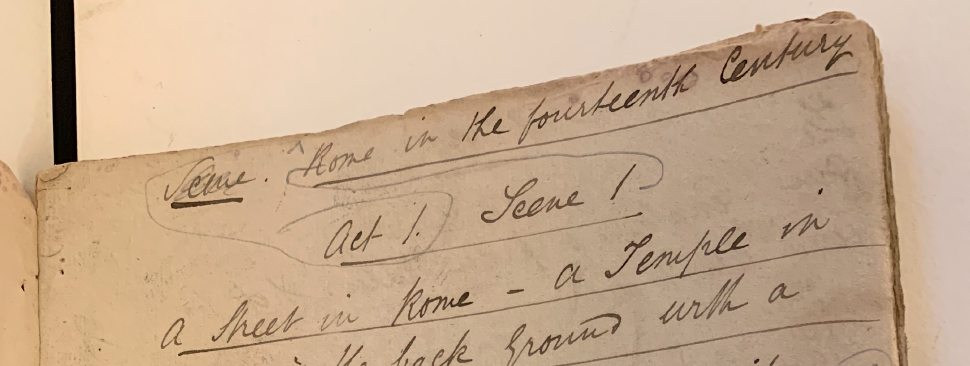 Scene. Rome in the fourteenth Century
Act 1. Scene 1
A Street in Rome – a Temple in
the back Ground with a